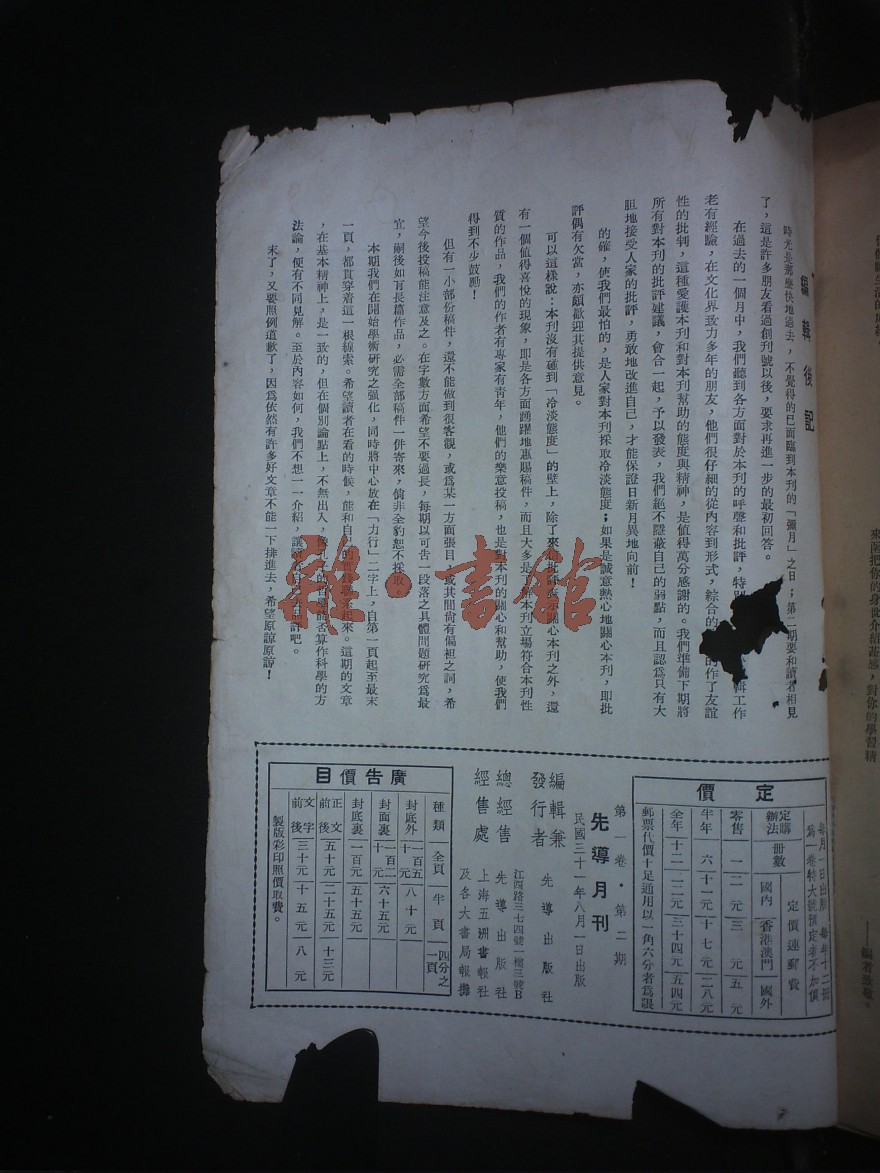 編輯後記
時光是那麼快地過去，不覺得的已面臨到本刊的「彌月」之日；第二期要和讀者相見
了，這是許多朋友看過創刊號以後，要求再進一步的最初回答。
在過去的一個月中，我們聽到各方面對於本刊的呼聲和批評，特別 輯工作
老有經驗，在文化界致力多年的朋友，他們很仔細的從內容到形式，綜合的 的作了友誼
性的批判，這種愛護本刊和對本刊幫助的態度與精神，是值得萬分感謝的。我們準備下期將
所有對本刊的批評建議，會合一起，予以發表，我們絕不隱蔽自己的弱點，而且認爲只有大
胆地接受人家的批評，勇敢地改進自己，才能保證日新月異地向前！
的確，使我們最怕的，是人家對本刊採取冷淡態度；如果是誠意熱心地關心本刊，即批
評偶有欠當，亦頗歡迎其提供意見。
可以這樣說：本刊沒有碰到「冷淡態度」的壁上，除了來 批評表示關心本刊之外，還
有一個値得喜悅的現象，卽是各方面踴躍地惠賜稿件，而且大多是了解本刊立場符合本刊性
質的作品，我們的作者有專家有青年，他們的樂意投稿，也是對本刊的關心和幫助，使我們
得到不少鼓勵！
但有一小部份稿件，還不能做到很客觀，或爲某一方面張目，或其間尙有偏袒之詞，希
望今後投稿能注意及之。在字數方面希望不要過長，每期以可告一段落之具體問題研究爲最
宜，嗣後如有長篇作品，必需全部稿件一併寄來，倘非全豹恕不採取。
本期我們在開始學術研究之强化，同時將中心放在「力行」二字上，自第一頁起至最末
一頁，都貫穿着這一根線索。希望讀者在看的時候，能和自己的 起來。這期的文章
，在基本精神上，是一致的，但在個別論點上，不無出入， 的哲學能否算作科學的方
法論，便有不同見解。至於內容如何，我們不想一一介紹，讓 自 去品評吧。
末了，又要照例道歉了，因爲依然有許多好文章不能一下排進去，希望原諒原諒！
雜·書館
每月一日出版 每年十二冊
定價
定購辦法 冊數 定價連郵費
國內 香港澳門 國外
零售 一 二元 三元 五元
半年 六 十一元 十七元 二八元
全年 十二 二二元 三十四元 五四元
郵票代價十足通用以一角六分者爲限
第一卷·第二期
先導月刊
民國三十一年八月一日出版
編輯兼發行者 先導出版社
江西路三七四號一樓三號B
總經售 先導出版社
經售處 上海五洲書報社
及各大書局報攤
廣告價目
種類 全頁 半頁 四分之一頁
封底外 一百五十元 八十元
封面裏 一百二十元 六十五元
封底裏 一百元 五十五元
正文前後 五十元 二十五元 十三元
文字前後 三十元 十五元 八元
製版彩印照價取費。